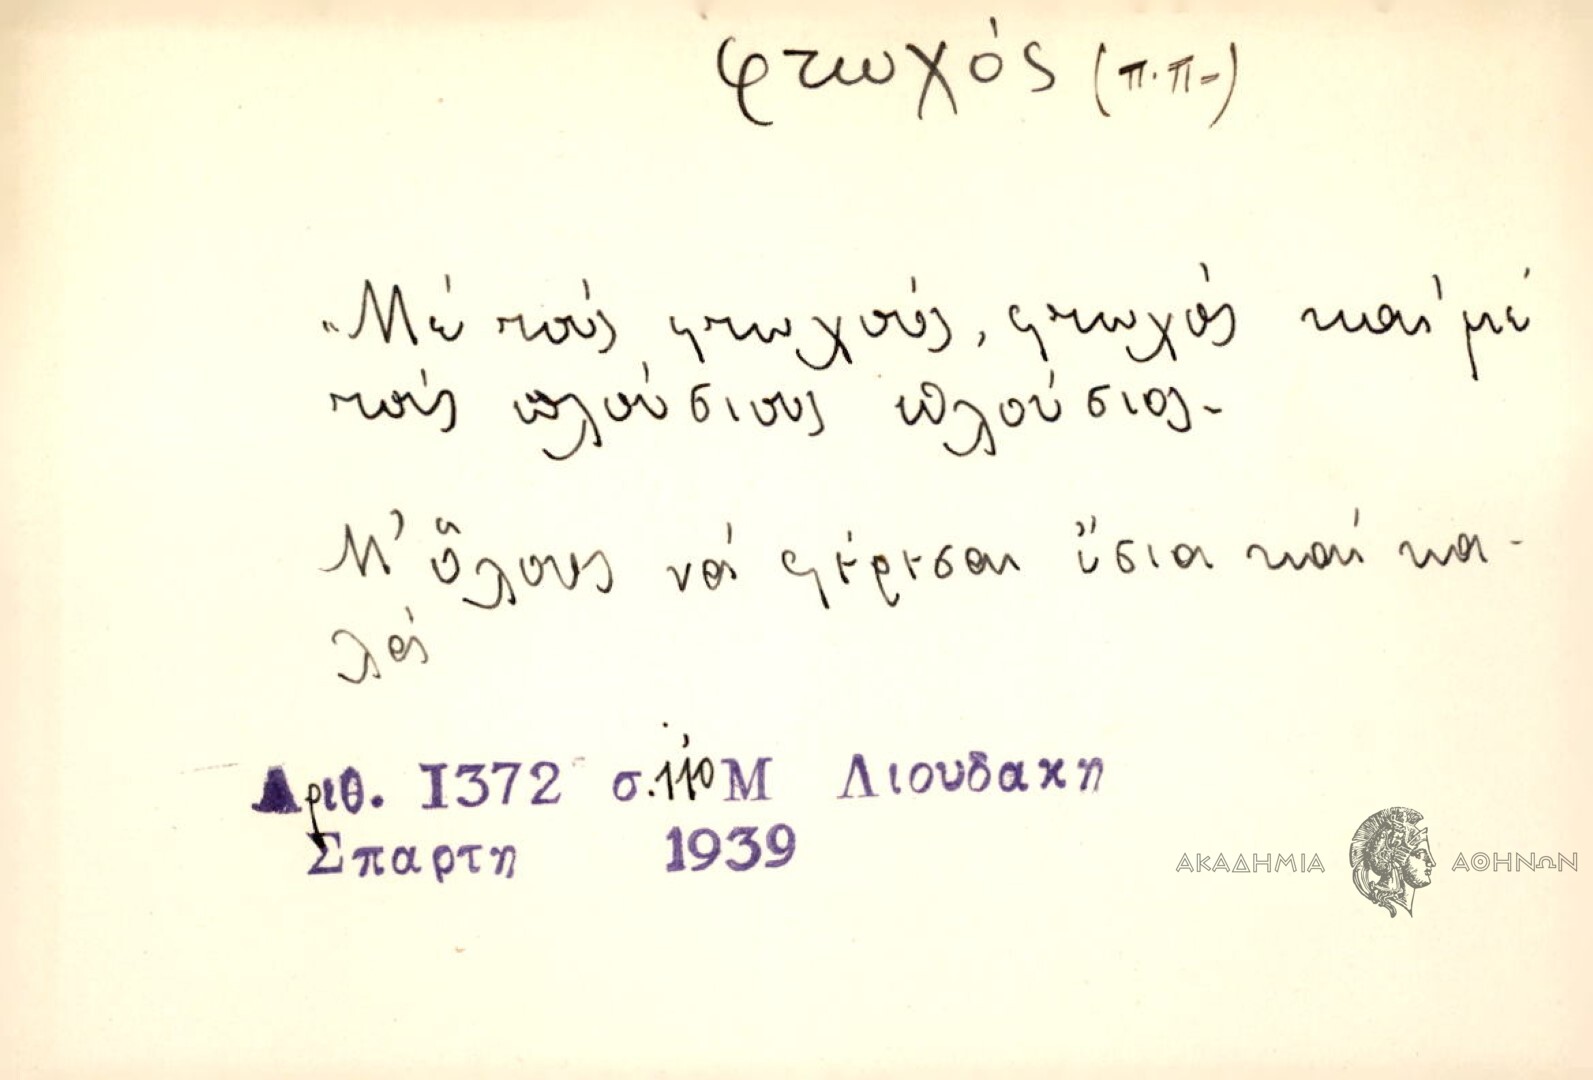 φτωχός (π.π-)
"Μέ τούς φτωχούς, φτωχός καί μέ
τούς πλούσιους πλούσιος.-
Μ' ὅλους νά φέρεσαι ἴσια καί κα-
λά
Αριθ. 1372 σ. 110 Μ Λιουδακη
Σπαρτη 1939
ΑΚΑΔΗΜΙΑ ΑΘΗΝΩΝ